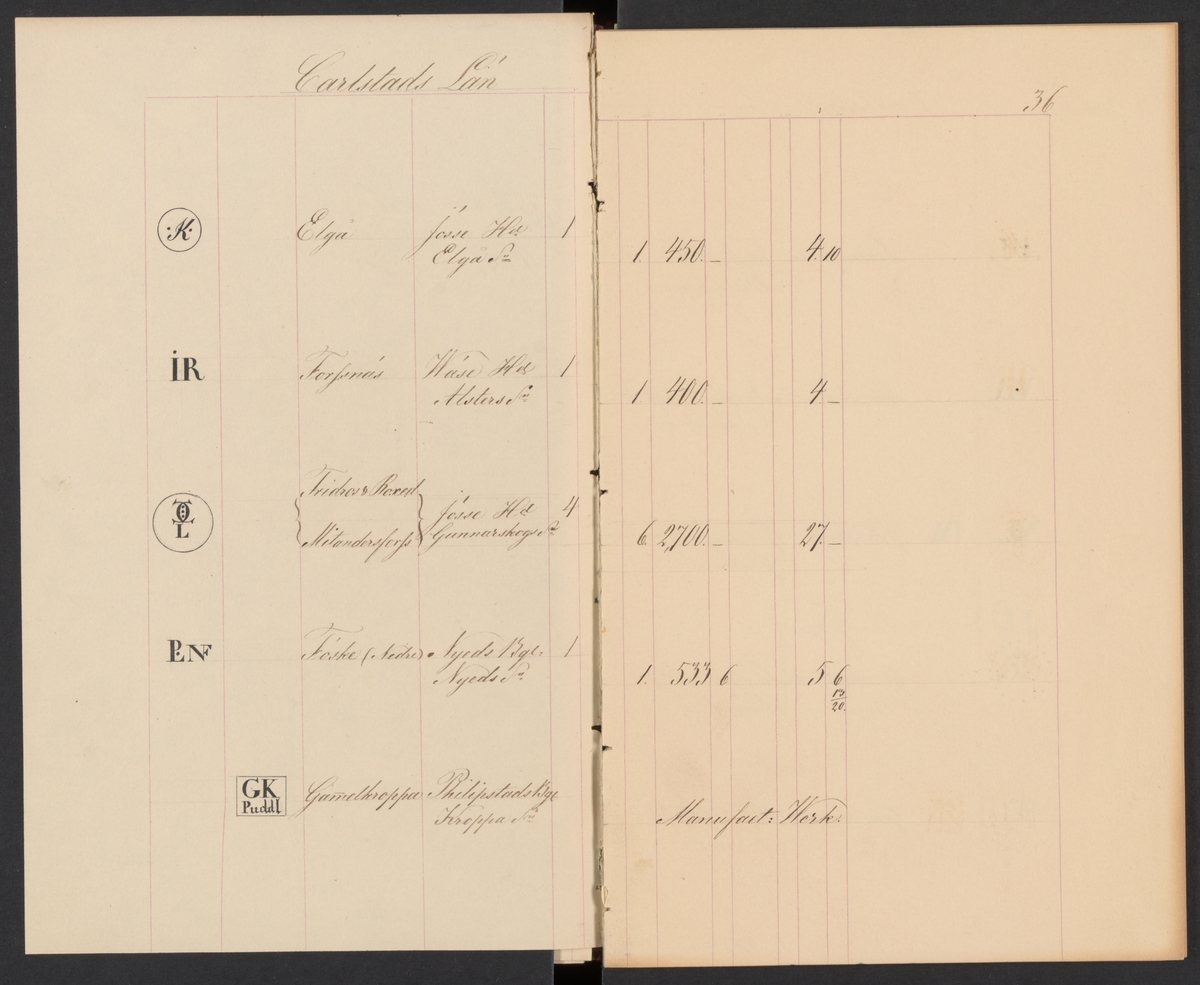 Carlstads Län
36
·K· Elgå Jösse Hd 1 1. 450. – 4. 10
Elgå Sn
İR Forssnäs Wäse Hd 1 1 400. – 4 –
Alsters Sn
Fridros & Roxed
TOL Jösse Hd 4 6. 2,700. – 27. –
Mitandersforss Gunnarskogs Sn
P.L NF Föske (Nedre) Nyeds Bgl. 1 1. 533 6 5 6 13/20.
Nyeds Sn
GK Gamelkroppa Philipstads Bgl
Puddl Kroppa Sn Manufact: Werk: